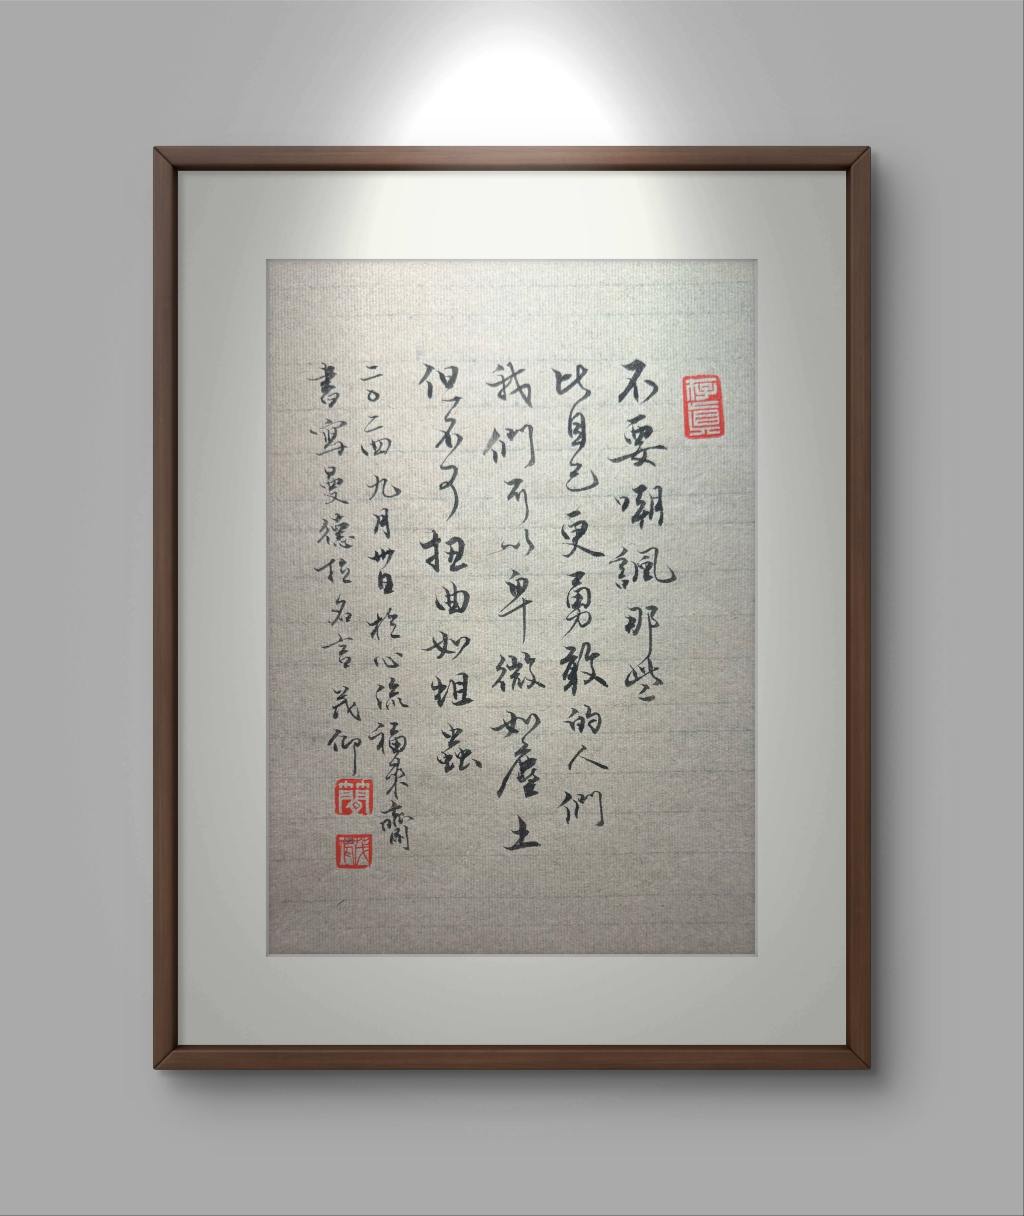 存真
不要嘲諷那些
比自己更勇敢的人們
我們可以卑微如塵土
但不可扭曲如蛆蟲
二〇二四九月卅日於心流福来齋
書寫曼德拉名言 茂仰
簡